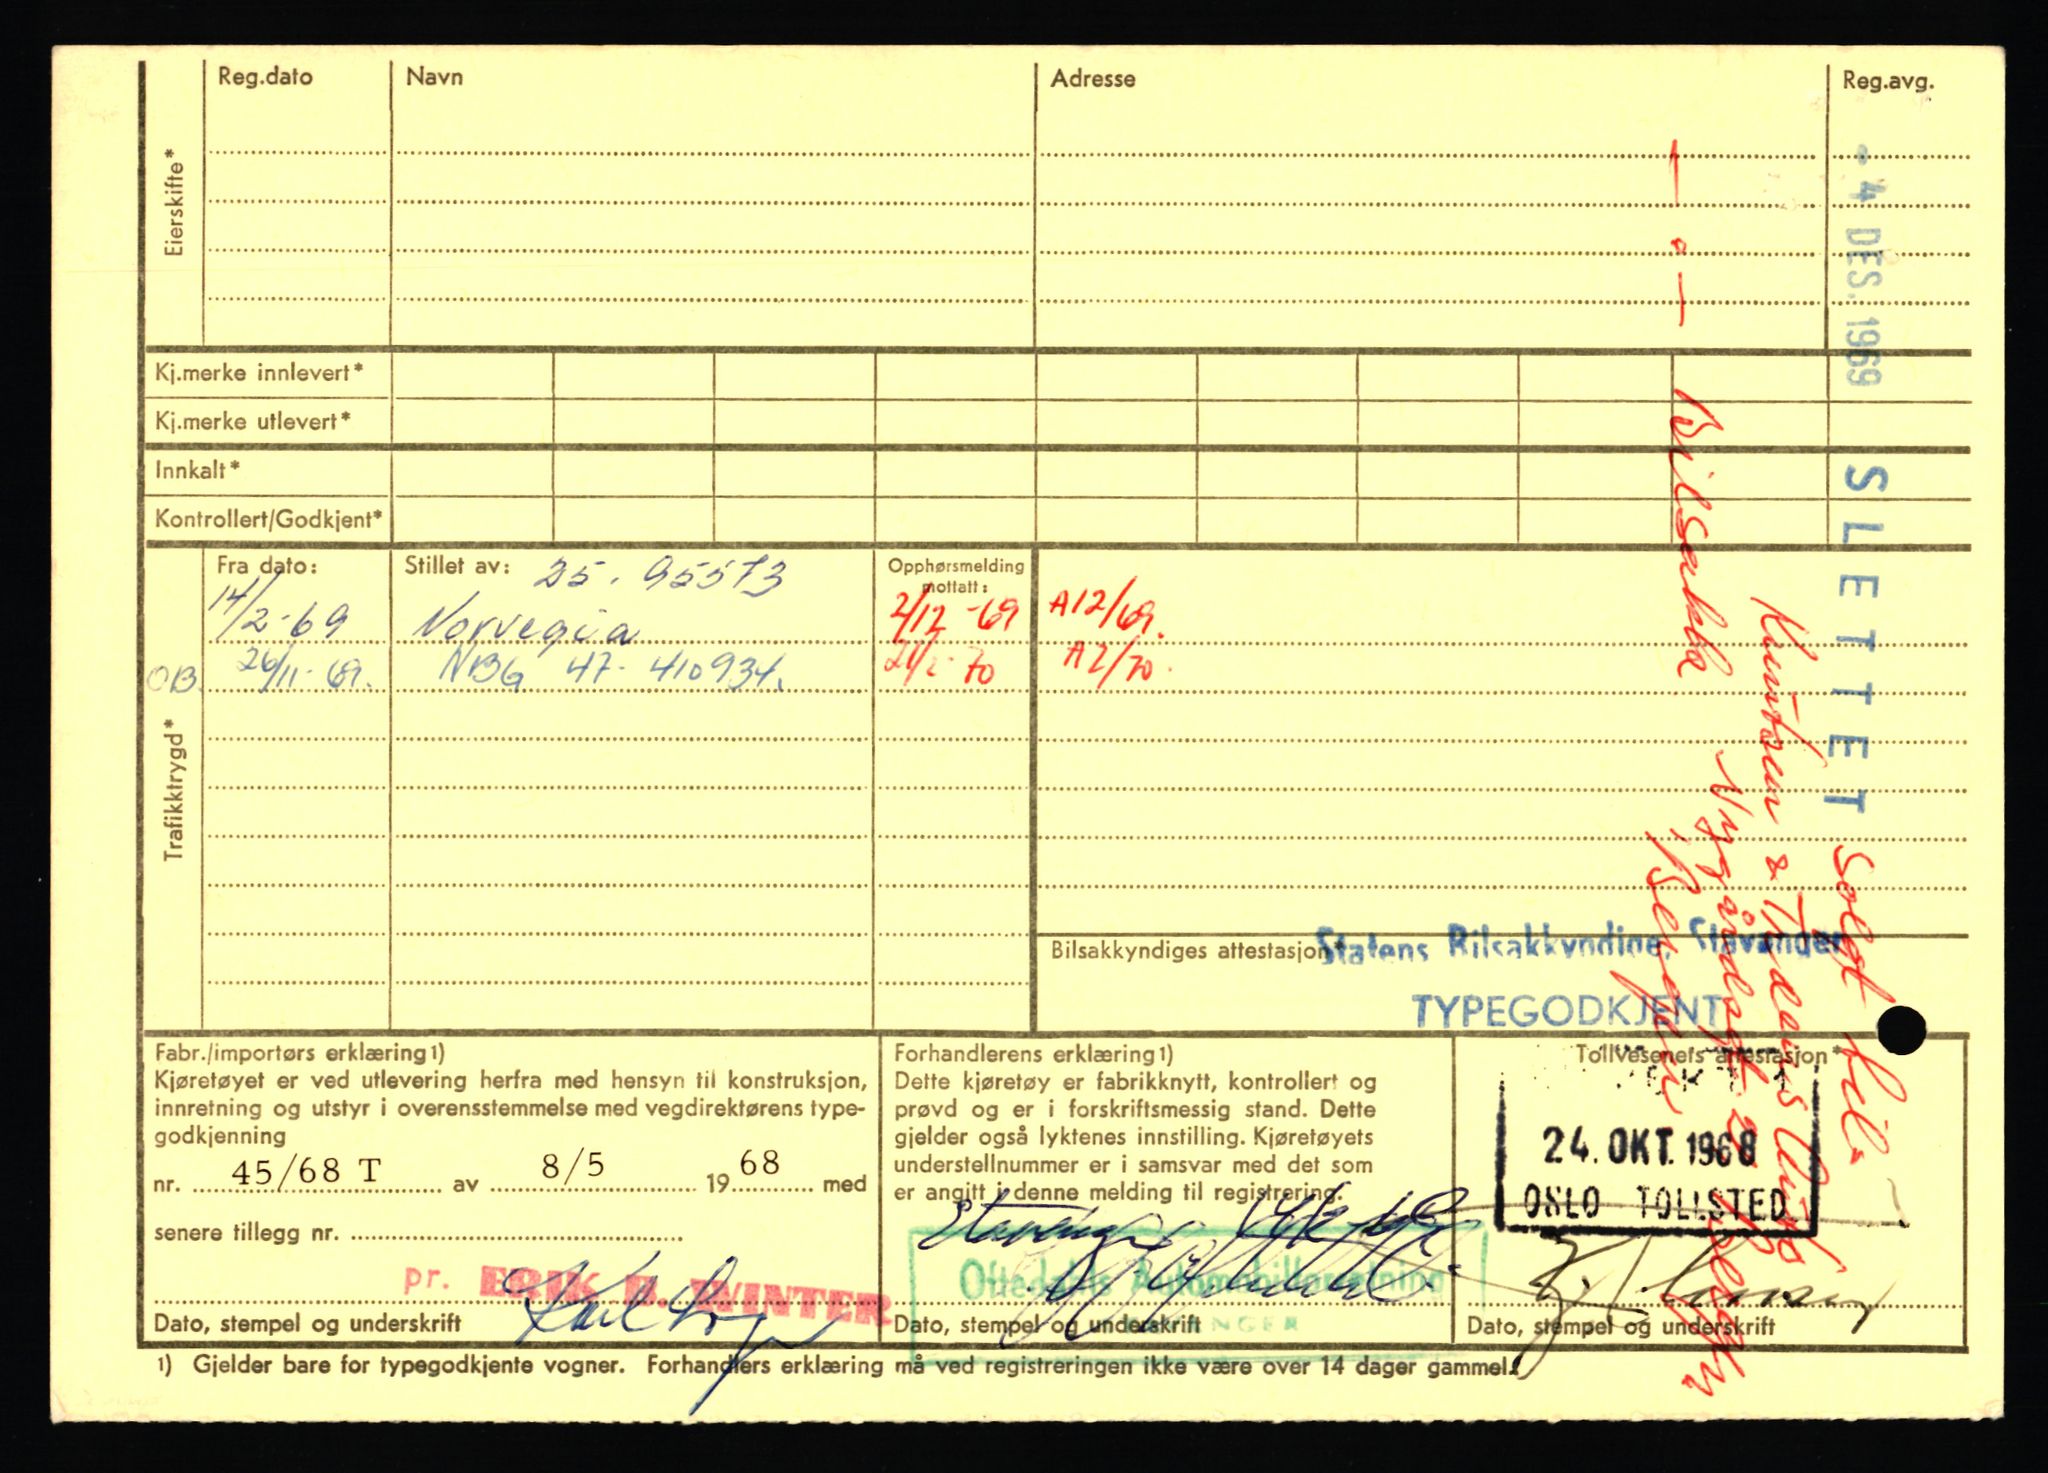 Reg.dato Navn Adresse Reg.avg.
Eierskifte*
- 4 DES. 1969
Kj.merke innlevert*
Kj.merke utlevert*
Innkalt*
Kontrollert/Godkjent*
Trafikktrygd*
Fra dato: Stillet av: 25. 95573 Opphørsmelding mottatt:
14/2-69 Norvegia 2/12-69 A12/69.
OB. 26/11-69. NBG 47-410934. 70 A2/70.
SLETTET Solgt til
Nygårdsgt. 2
Bergen
Bilsakk
Bilsakkyndiges attestasjon
Statens Bilsakkyndige, Stavanger
TYPEGODKJENT
Fabr./importørs erklæring1)
Kjøretøyet er ved utlevering herfra med hensyn til konstruksjon,
innretning og utstyr i overensstemmelse med vegdirektørens type-
godkjenning
nr. 45/68 T av 8/5 1968 med
senere tillegg nr.
pr. ERIK E. WINTER
Dato, stempel og underskrift
Forhandlerens erklæring1)
Dette kjøretøy er fabrikknytt, kontrollert og
prøvd og er i forskriftsmessig stand. Dette
gjelder også lyktenes innstilling. Kjøretøyets
understellnummer er i samsvar med det som
er angitt i denne melding til registrering.
Oftedahls Automobilforretning
STAVANGER
Dato, stempel og underskrift
Tollvesenets attestasjon*
24. OKT. 1968
OSLO TOLLSTED
Dato, stempel og underskrift
1) Gjelder bare for typegodkjente vogner. Forhandlers erklæring må ved registreringen ikke være over 14 dager gammel.